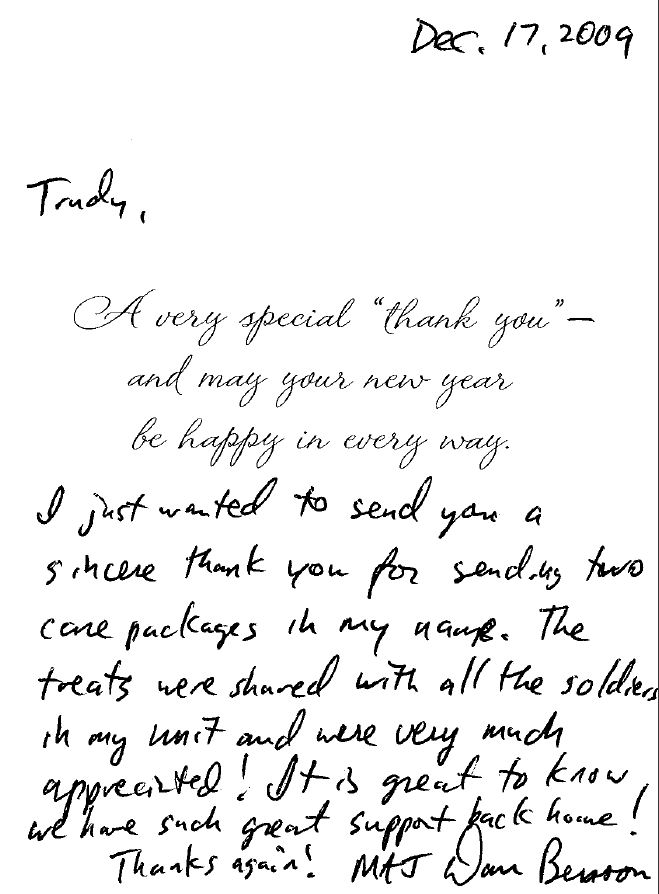 Dec. 17, 2009
Trudy,
A very special “thank you”—
and may your new year
be happy in every way.
I just wanted to send you a
sincere thank you for sending two
care packages in my name. The
treats were shared with all the soldiers
in my unit and were very much
appreciated! It is great to know
we have such great support back home!
Thanks again! MAJ Dan Benson